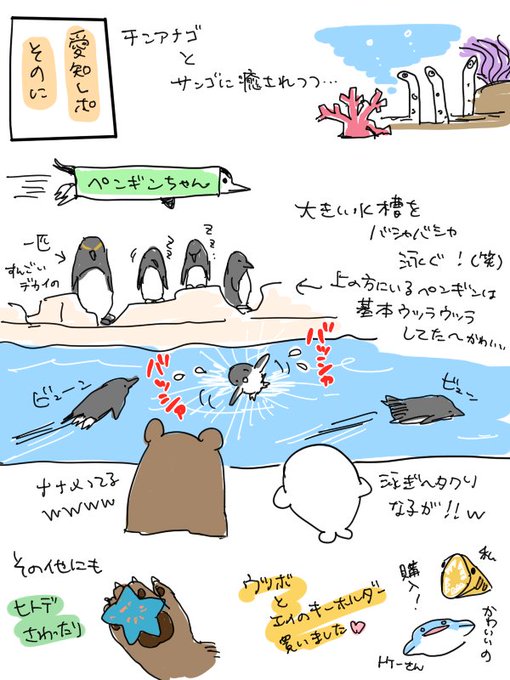 愛知レポ
そのに
チンアナゴ
と
サンゴに癒されつつ…
ペンギンちゃん
大きい水槽を
バシャバシャ
泳ぐ！(笑)
一匹
すんごい
デカイの
上の方にいるペンギンは
基本ウッラウッラ
してた〜かわいい
ビューン
バッシャ
バッシャ
ビュン
ナナメってる
wwww
泳ぎヘタクソ
な子が!!w
その他にも
ヒトデ
さわったり
ウツボ
と
エイのキーホルダー
買いました♡
私
購入！
かわいいの
トケーさん